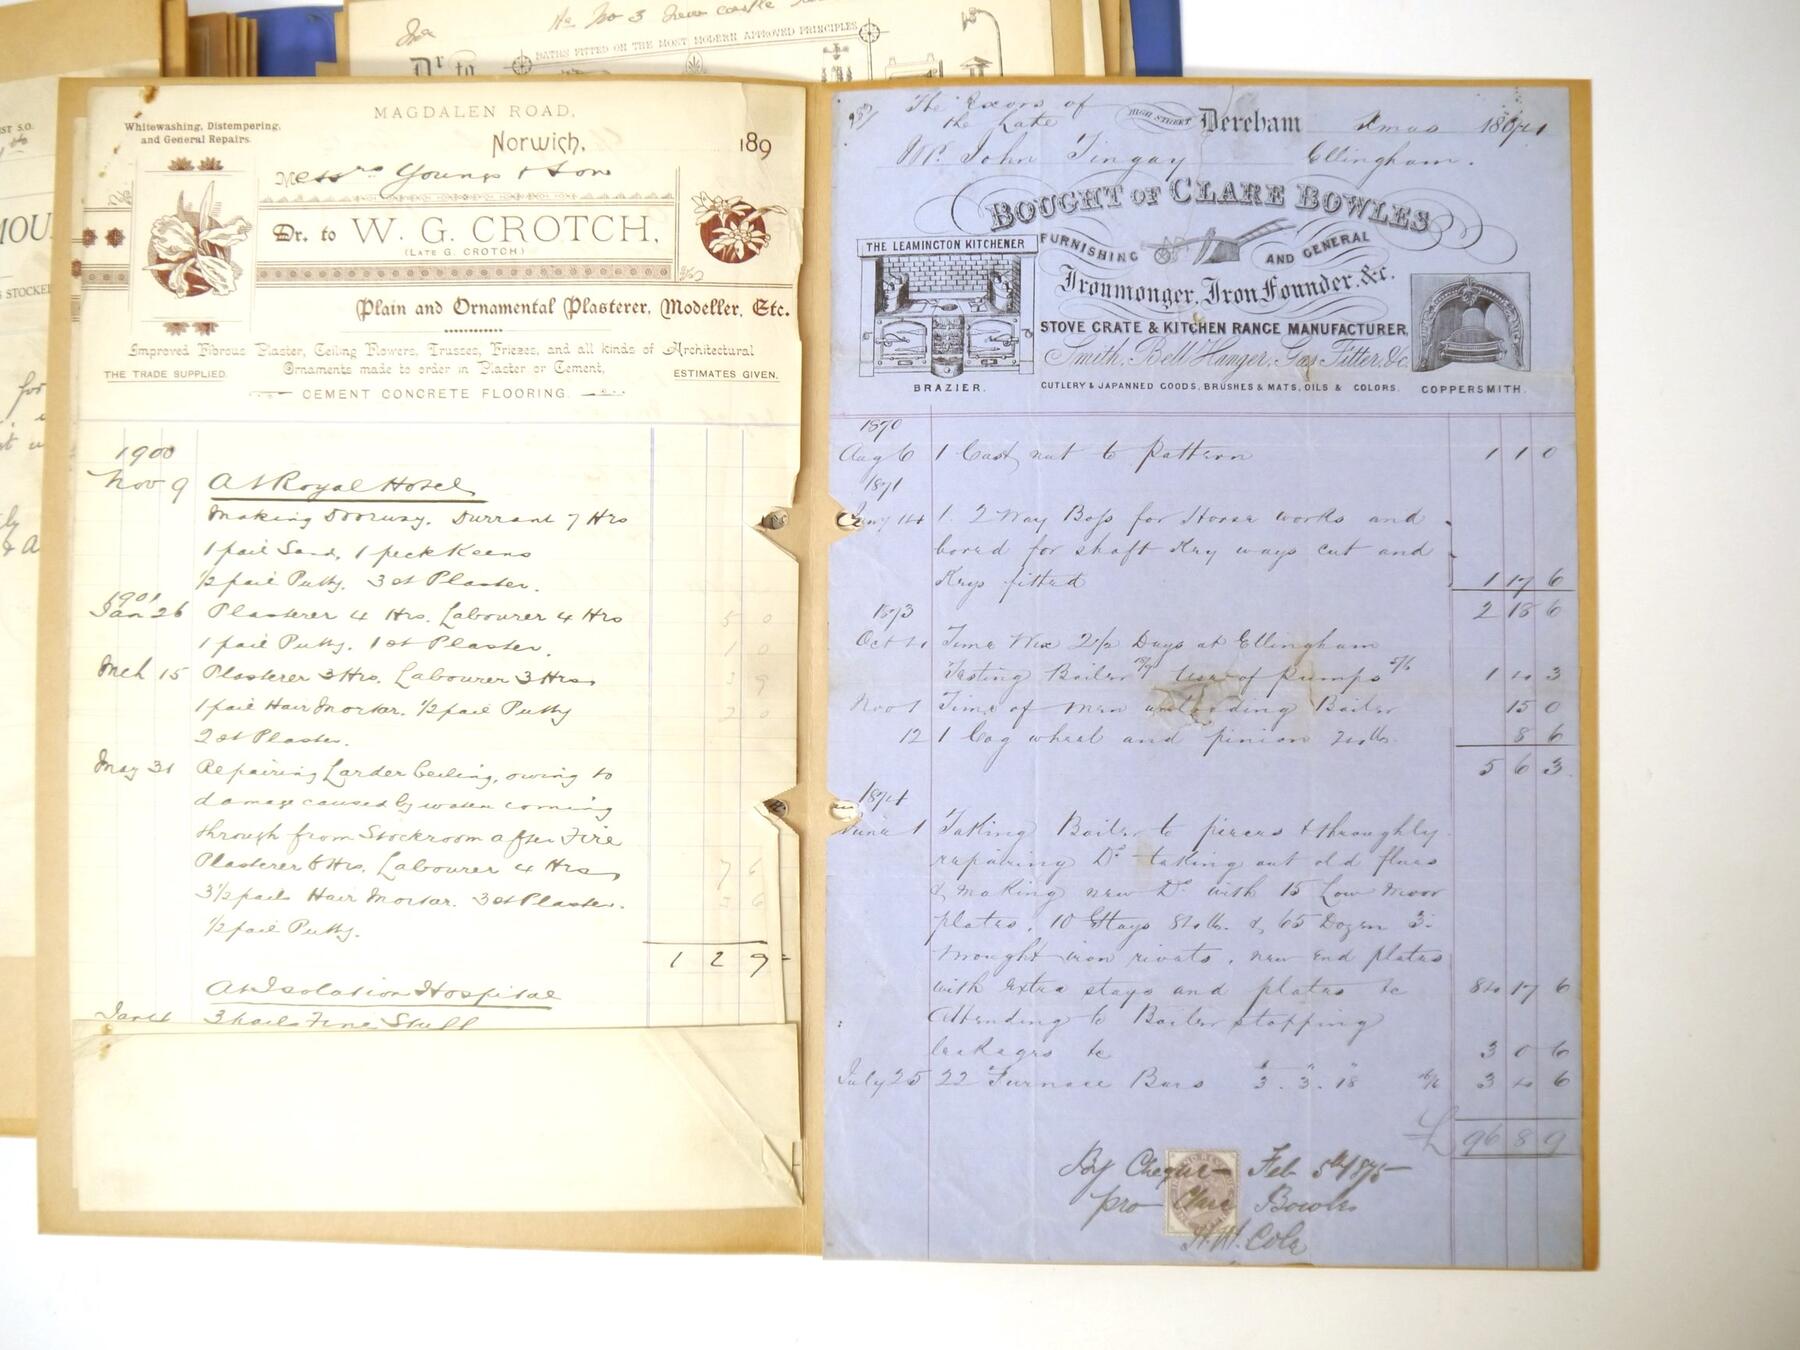 No 3 New castle
Dr to
BATHS FITTED ON THE MOST MODERN APPROVED PRINCIPLES
ST S.O.
MOU
S STOCKE
for
MAGDALEN ROAD,
Whitewashing, Distempering,
and General Repairs.
Norwich, 189
Messrs Youngs & Son
Dr. to W. G. CROTCH,
(LATE G. CROTCH.)
Plain and Ornamental Plasterer, Modeller, Etc.
Improved Fibrous Plaster, Ceiling Flowers, Trusses, Friezes, and all kinds of Architectural
Ornaments made to order in Plaster or Cement,
THE TRADE SUPPLIED.
ESTIMATES GIVEN.
CEMENT CONCRETE FLOORING.
1900
Nov 9 At Royal Hotel
Making Doorway. Durrant 7 Hrs
1 pail Sand, 1 peck Keens
1/2 pail Putty. 3 st Plaster.
1901
Jan 26 Plasterer 4 Hrs. Labourer 4 Hrs 5 0
1 pail Putty. 1 st Plaster. 1 0
Mch 15 Plasterer 3 Hrs. Labourer 3 Hrs 3 9
1 pail Hair Mortar. 1/2 pail Putty 2 0
2 st Plaster.
May 31 Repairing Larder Ceiling, owing to
damage caused by water coming
through from Stockroom after Fire
Plasterer 6 Hrs. Labourer 4 Hrs 7 6
3 1/2 pails Hair Mortar. 3 st Plaster. 3 6
1/2 pail Putty.
1 2 9
At Isolation Hospital
3 pails Fine Stuff
The Exors of
the Late
HIGH STREET Dereham Xmas 1874
Mr. John Tingay Ellingham.
BOUGHT OF CLARE BOWLES
THE LEAMINGTON KITCHENER
FURNISHING AND GENERAL
Ironmonger, Iron Founder, &c.
STOVE GRATE & KITCHEN RANGE MANUFACTURER,
Smith, Bell Hanger, Gas Fitter, &c.
BRAZIER.
CUTLERY & JAPANNED GOODS, BRUSHES & MATS, OILS & COLORS.
COPPERSMITH.
1870
Aug 6 1 Cast nut to Pattern 1 1 0
1871
Jany 14 1 2 Way Boss for Horse works and
bored for shaft Key ways cut and
Keys fitted 1 17 6
2 18 6
1873
Time 2 1/2 Days at Ellingham
Testing Boiler Use of Pumps 5/6 1 4 3
Nov 1 Time of Men unloading Boiler 15 0
12 1 Cog wheel and pinion 8 6
5 6 3
1874
June 1 Taking Boiler to pieces & throughly
repairing Do taking out old flues
& making new Do with 15 Low Moor
plates, 10 Stays 84 lb. & 65 Dozen
wrought iron rivets, new end plates
with extra stays and plates &c 84 17 6
Attending to Boiler stopping
leakages &c 3 0 6
July 25 22 Furnace Bars 3 . 3 . 18 3 4 6
£ 96 8 9
By Cheque Feb 5th 1875
pro Clare Bowles
H. W. Cole